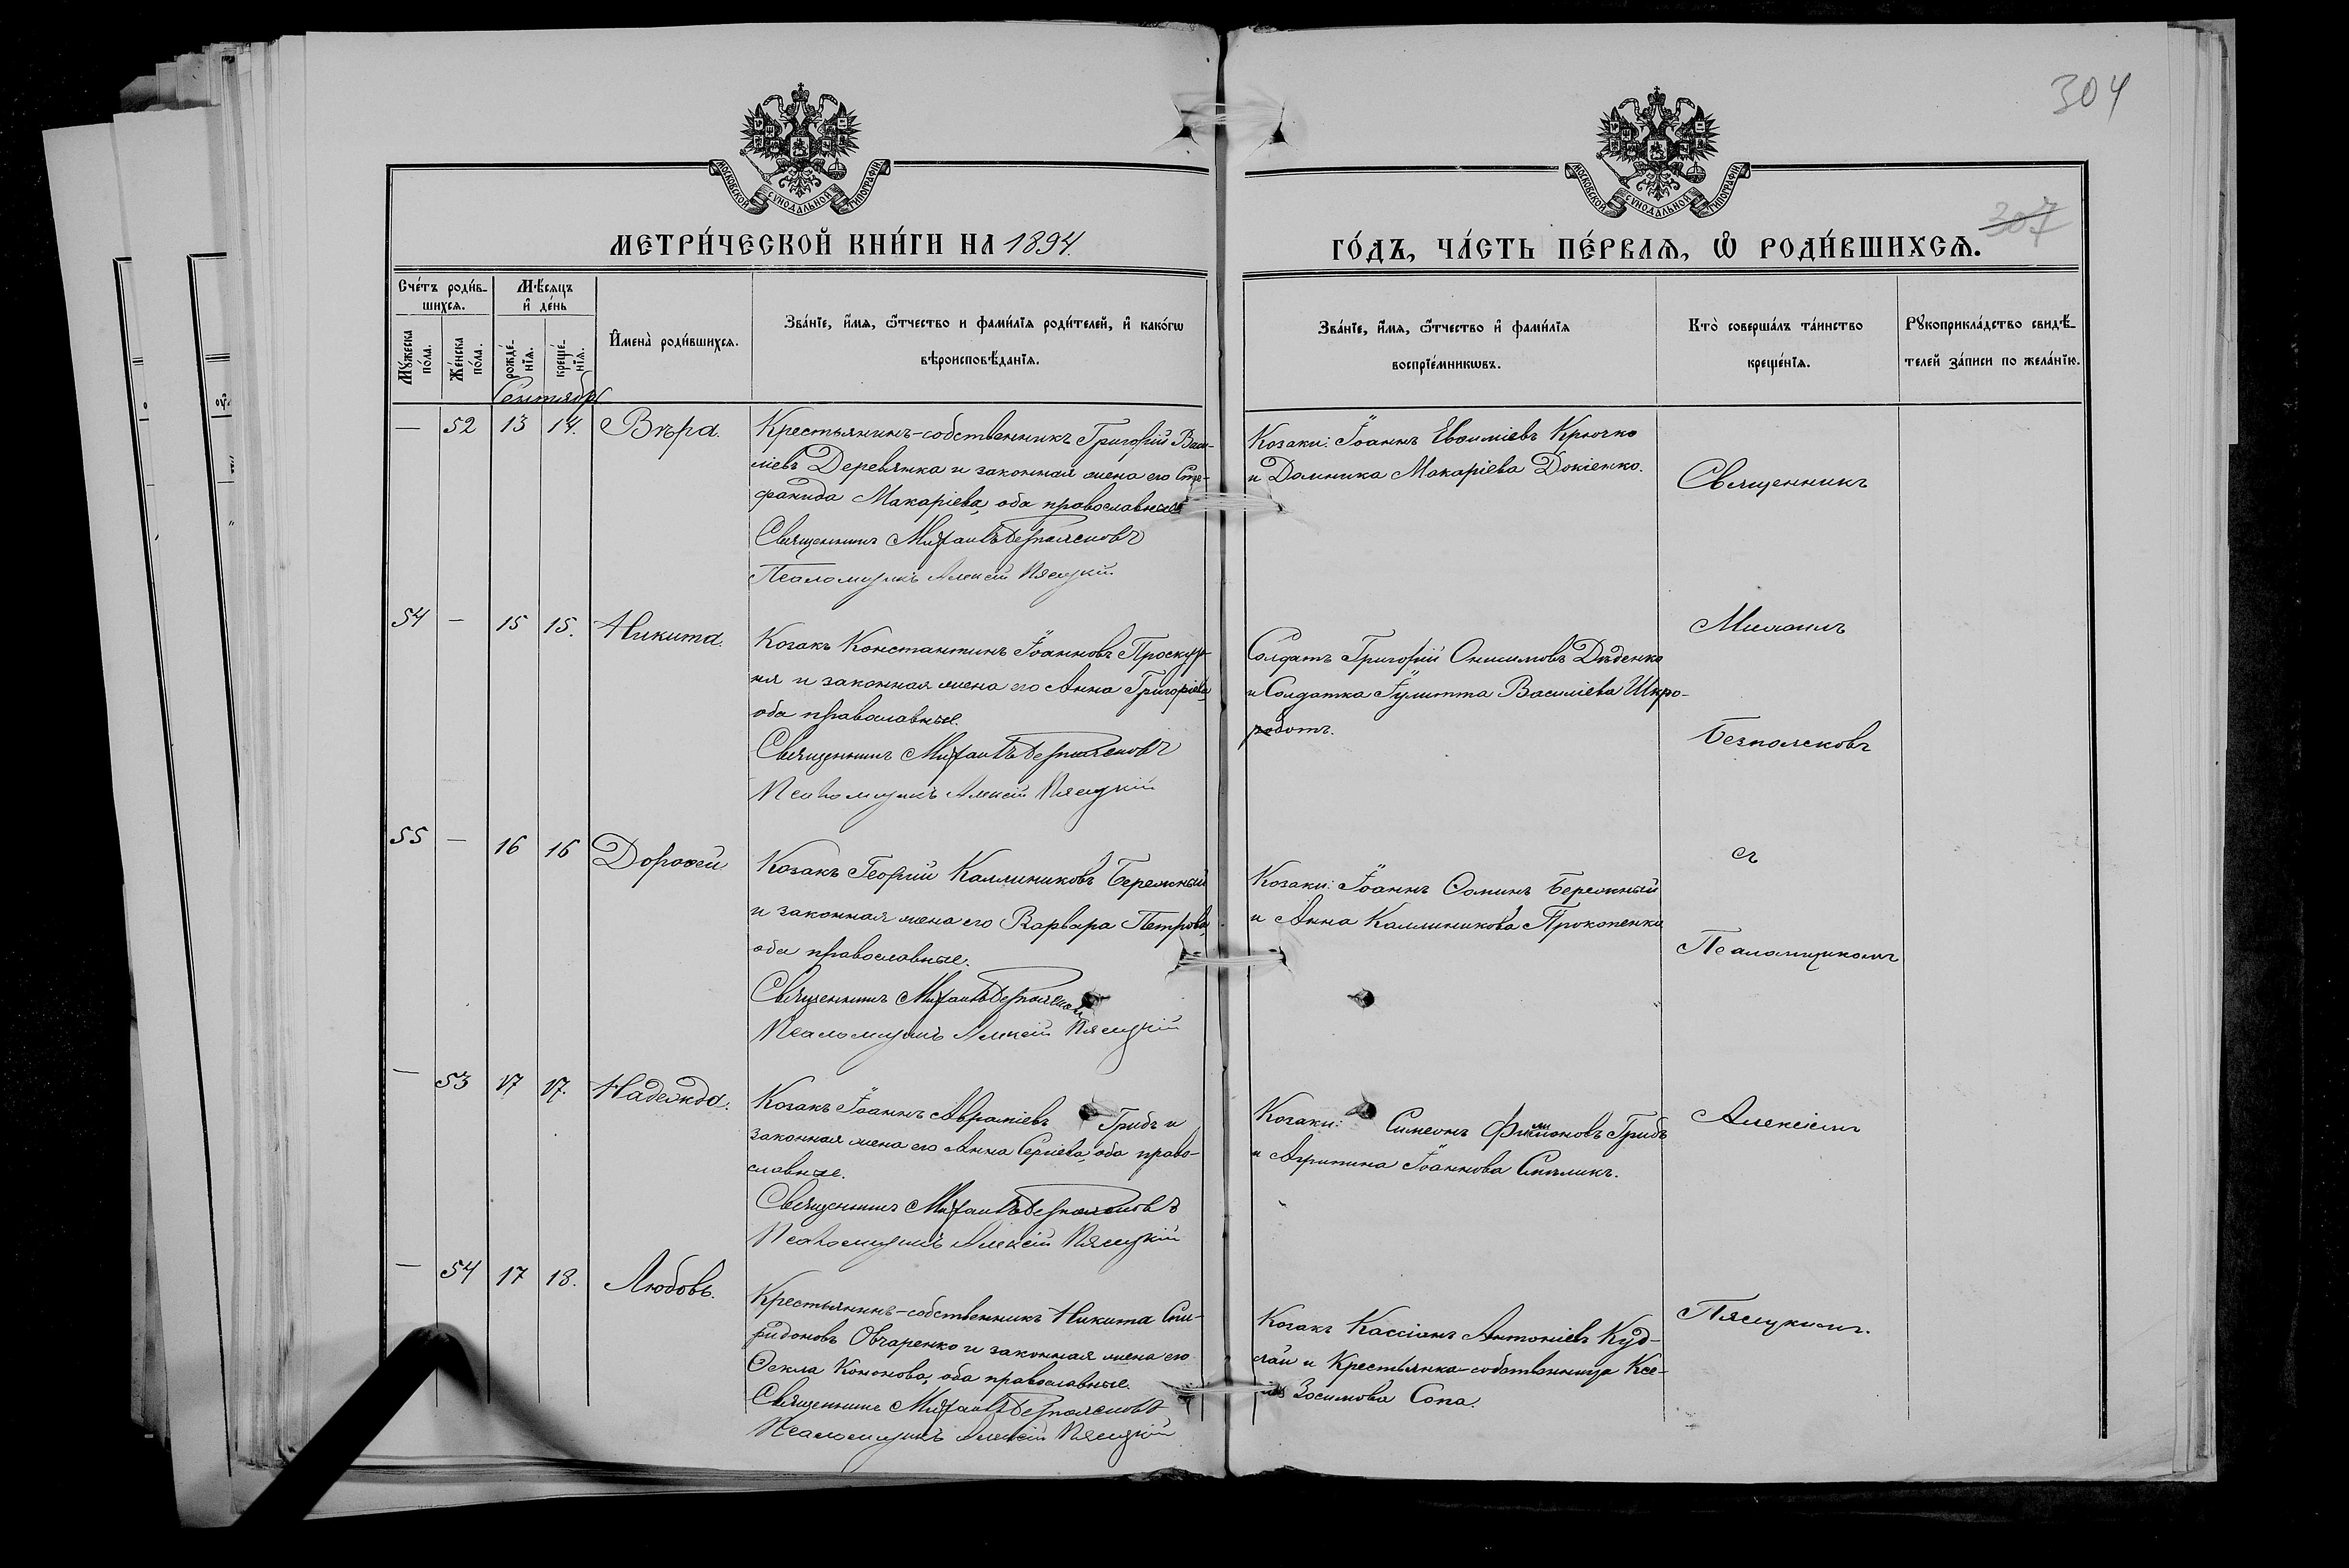 304
307
МОСКОВСКОЙ СѴНОДАЛЬНОЙ ТИПОГРАФІИ
МОСКОВСКОЙ СѴНОДАЛЬНОЙ ТИПОГРАФІИ
МЕТРИ́ЧЕСКОЙ КНИ́ГИ НА 1894.
ГО́ДЪ, ЧА́СТЬ ПЕ́РВАѦ, Ѽ РОДИ́ВШИХСѦ.
Сче́тъ роди́в-
шихсѧ.
Мꙋжеска по́ла.
Же́нска по́ла.
Мѣ́сѧцъ
и҆ де́нь
рожде́-
нїѧ.
креще́-
нїѧ.
И҆мена̀ роди́вшихсѧ.
Зва́нїе, и҆́мѧ, ѻ҆́тчество и фами́лїѧ роди́телей, и҆ како́гѡ
вѣроисповѣ́данїѧ.
Зва́нїе, и҆́мѧ, ѻ҆́тчество и҆ фами́лїѧ
воспрїе́мникѡвъ.
Кто̀ соверша́лъ та́инство
креще́нїѧ.
Рꙋкоприкла́дство свидѣ́-
телей за́писи по жела́нїю.
Сентябрь
— 52 13 14. Вѣра.
Крестьянинъ-собственникъ Григорій Васи-
ліевъ Деревянка и законная жена его Сте-
фанида Макаріева, оба православные
Священникъ Михаилъ Безпоясковъ
Псаломщикъ Алексій Пясецкій
Козаки: Іоаннъ Евѳиміевъ Крючко
и Домника Макаріева Докіенко.
Священникъ
54 — 15 15. Никита.
Козакъ Константинъ Іоанновъ Проскур-
ня и законная жена его Анна Григоріева,
оба православные.
Священникъ Михаилъ Безпоясковъ
Псаломщикъ Алексій Пясецкій
Солдатъ Григорій Онисимовъ Дѣденко
и Солдатка Іулитта Василіева Шкро-
роботъ.
Михаилъ
Безпоясковъ
55 — 16 16 Дороѳей
Козакъ Георгій Каллиниковъ Бережный
и законная жена его Варвара Петрова,
оба православные.
Священникъ Михаилъ Безпоясковъ
Псаломщикъ Алексій Пясецкій
Козаки: Іоаннъ Ѳоминъ Бережный
и Анна Каллиникова Прокопенко
съ
Псаломщикомъ
— 53 17 17. Надежда.
Козакъ Іоаннъ Авраміевъ Грибъ и
законная жена его Анна Сергіева, оба право-
славные.
Священникъ Михаилъ Безпоясковъ
Псаломщикъ Алексій Пясецкій
Козаки: Симеонъ Филимоновъ Грибъ
и Агрипина Іоаннова
Алексіемъ
— 54 17 18. Любовь.
Крестьянинъ-собственникъ Никита Спи-
ридоновъ Овчаренко и законная жена его
Ѳекла Кононова, оба православные.
Священникъ Михаилъ Безпоясковъ
Псаломщикъ Алексій Пясецкій
Козакъ Кассіанъ Антоніевъ Куд-
лай и Крестьянка-собственница Ксе-
нія Зосимова Сопа.
Пясецкимъ.